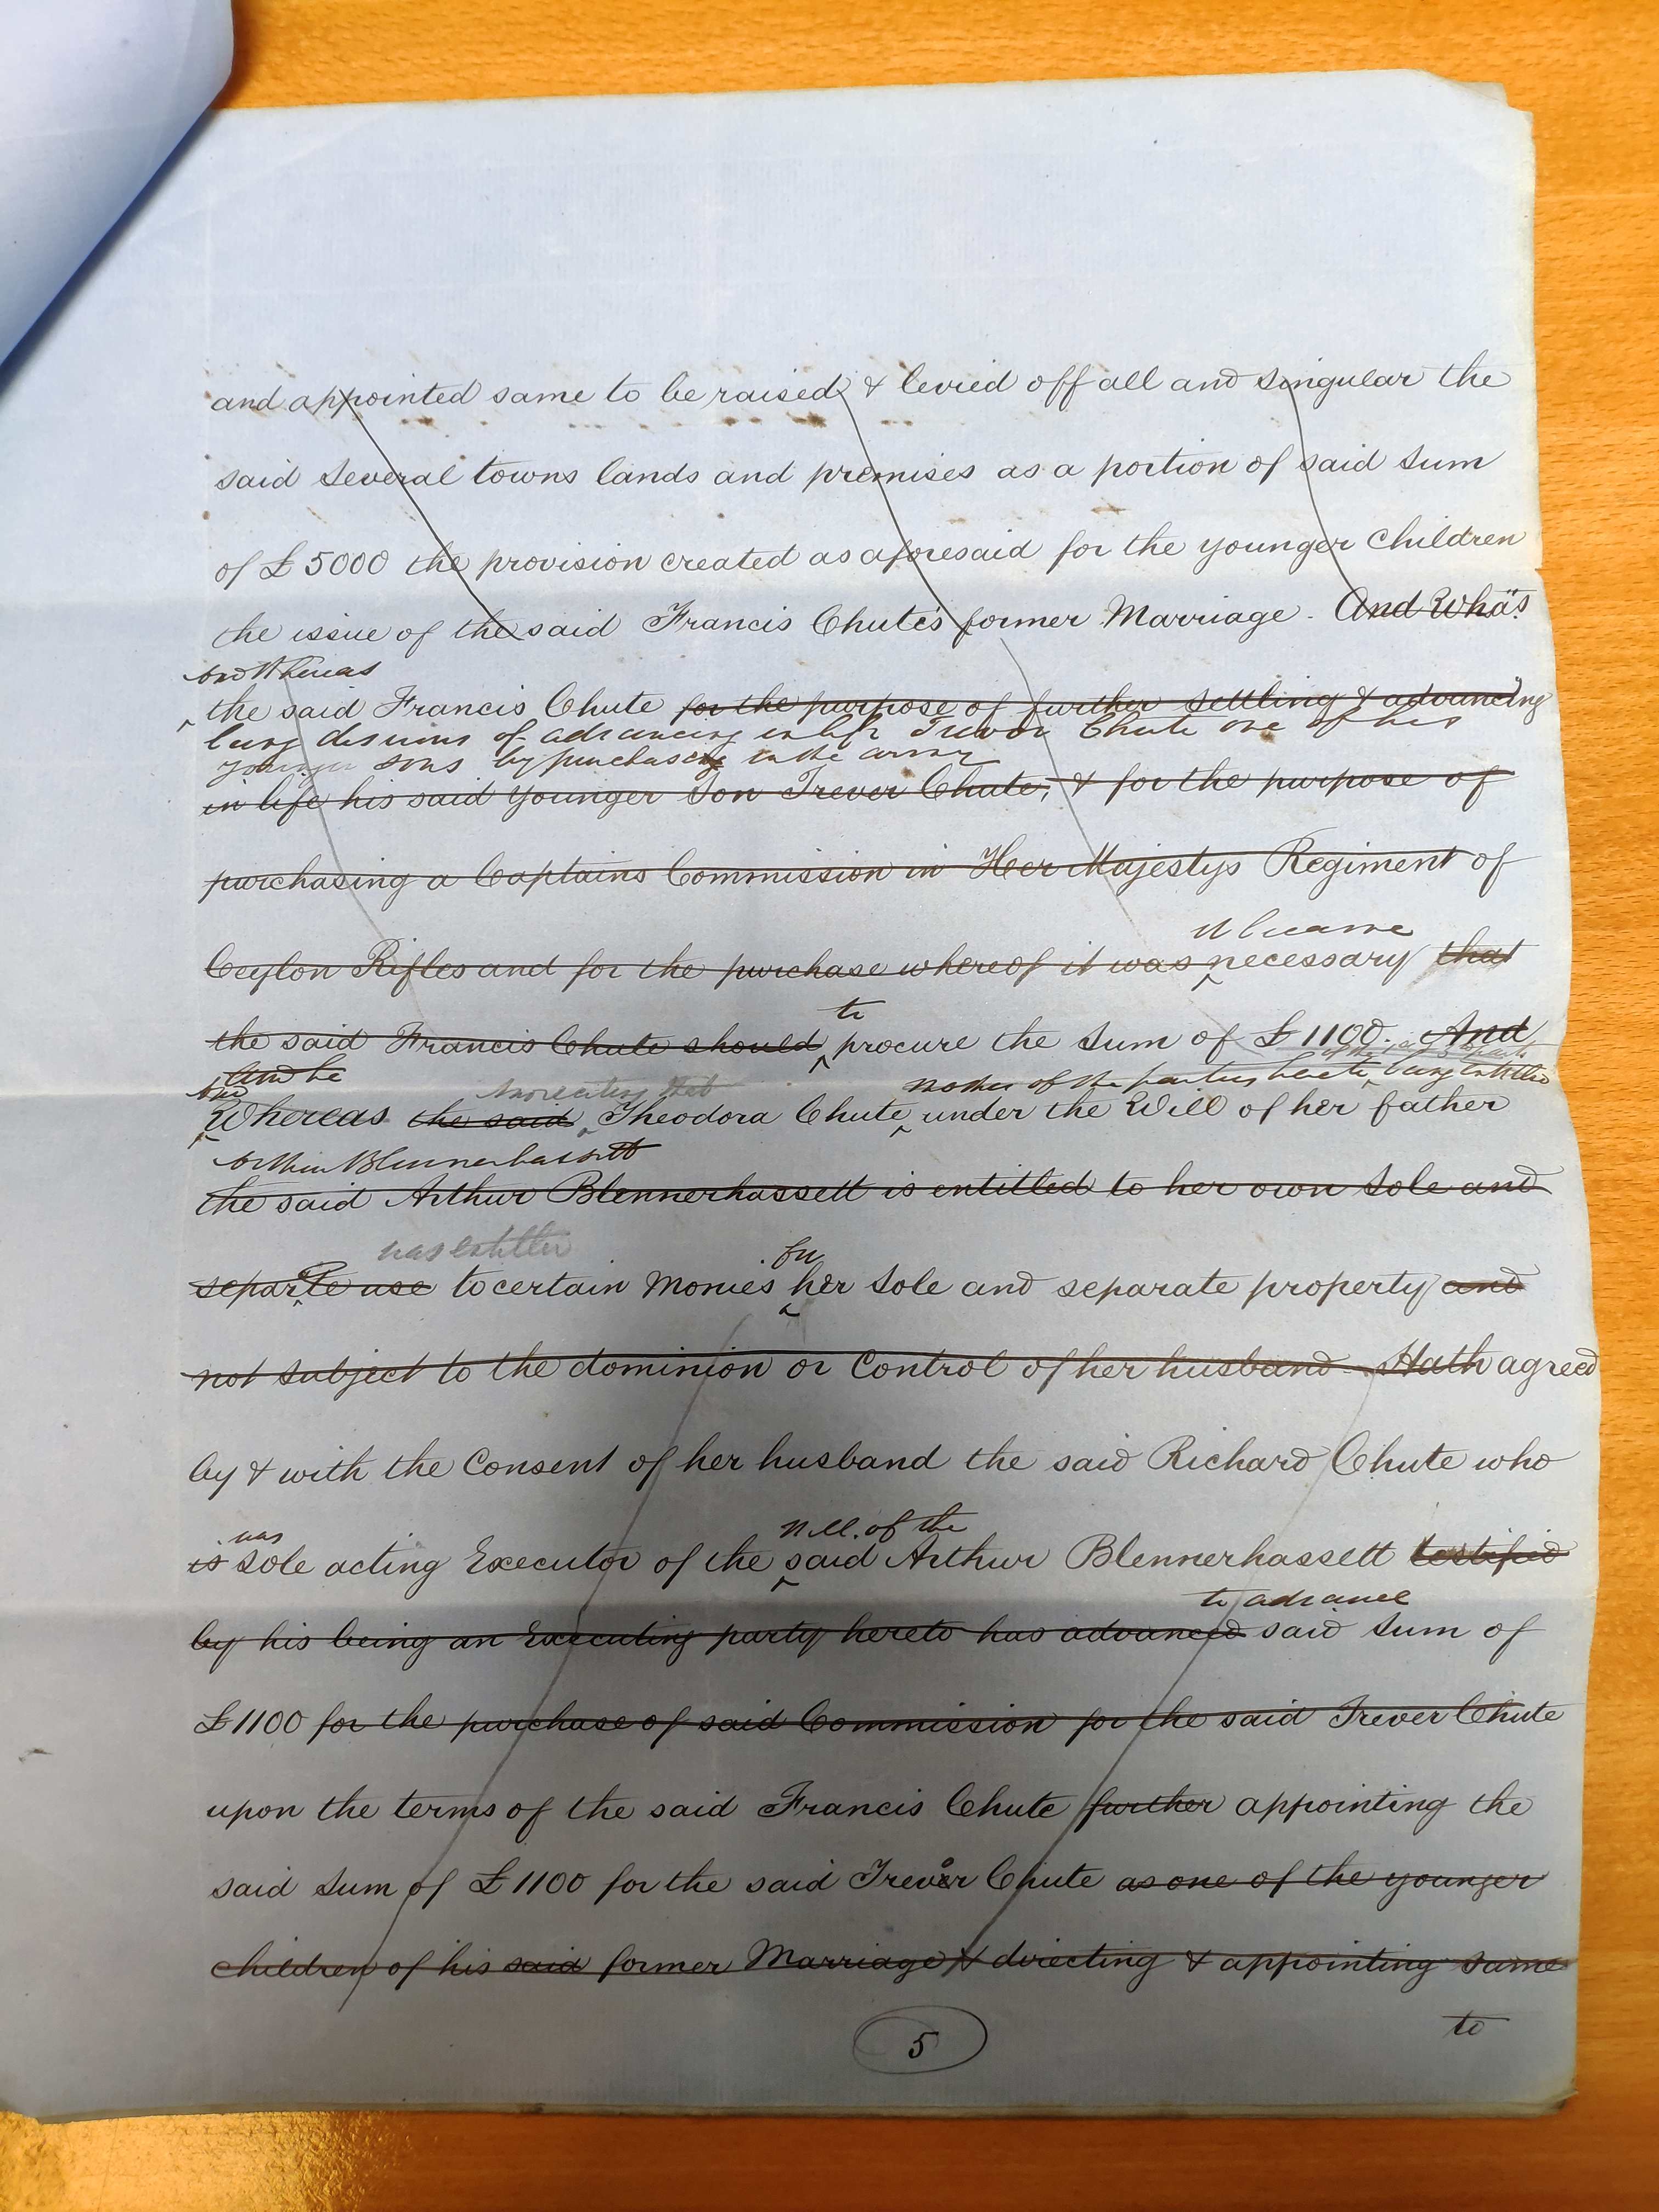 and appointed same to be raised & levied off all and singular the
said several towns lands and premises as a portion of said sum
of £5000 the provision created as aforesaid for the younger children
the issue of the said Francis Chute's former Marriage. And Whas
and Whereas
the said Francis Chute for the purpose of further settling & advancing
being desirous of advancing in life Trevor Chute one of his
younger sons by purchase in the army
in life his said younger Son Trever Chute, & for the purpose of
purchasing a Captains Commission in Her Majestys Regiment of
it became
Ceylon Rifles and for the purchase whereof it was necessary that
to
the said Francis Chute should procure the sum of £1100. And
And he
and
mother of the parties hereto being entitled
Whereas the said Theodora Chute under the Will of her father
Arthur Blennerhassett
the said Arthur Blennerhassett is entitled to her own sole and
was entitled
for
separte use to certain Monies her sole and separate property and
not subject to the dominion or Control of her husband Hath agreed
by & with the Consent of her husband the said Richard Chute who
was
of the
is sole acting Executor of the said Arthur Blennerhassett testified
to advance
by his being an Executing party hereto has advanced said sum of
£1100 for the purchase of said Commission for the said Trever Chute
upon the terms of the said Francis Chute further appointing the
said sum of £1100 for the said Trevor Chute as one of the younger
children of his said former Marriage & directing & appointing same
to
5